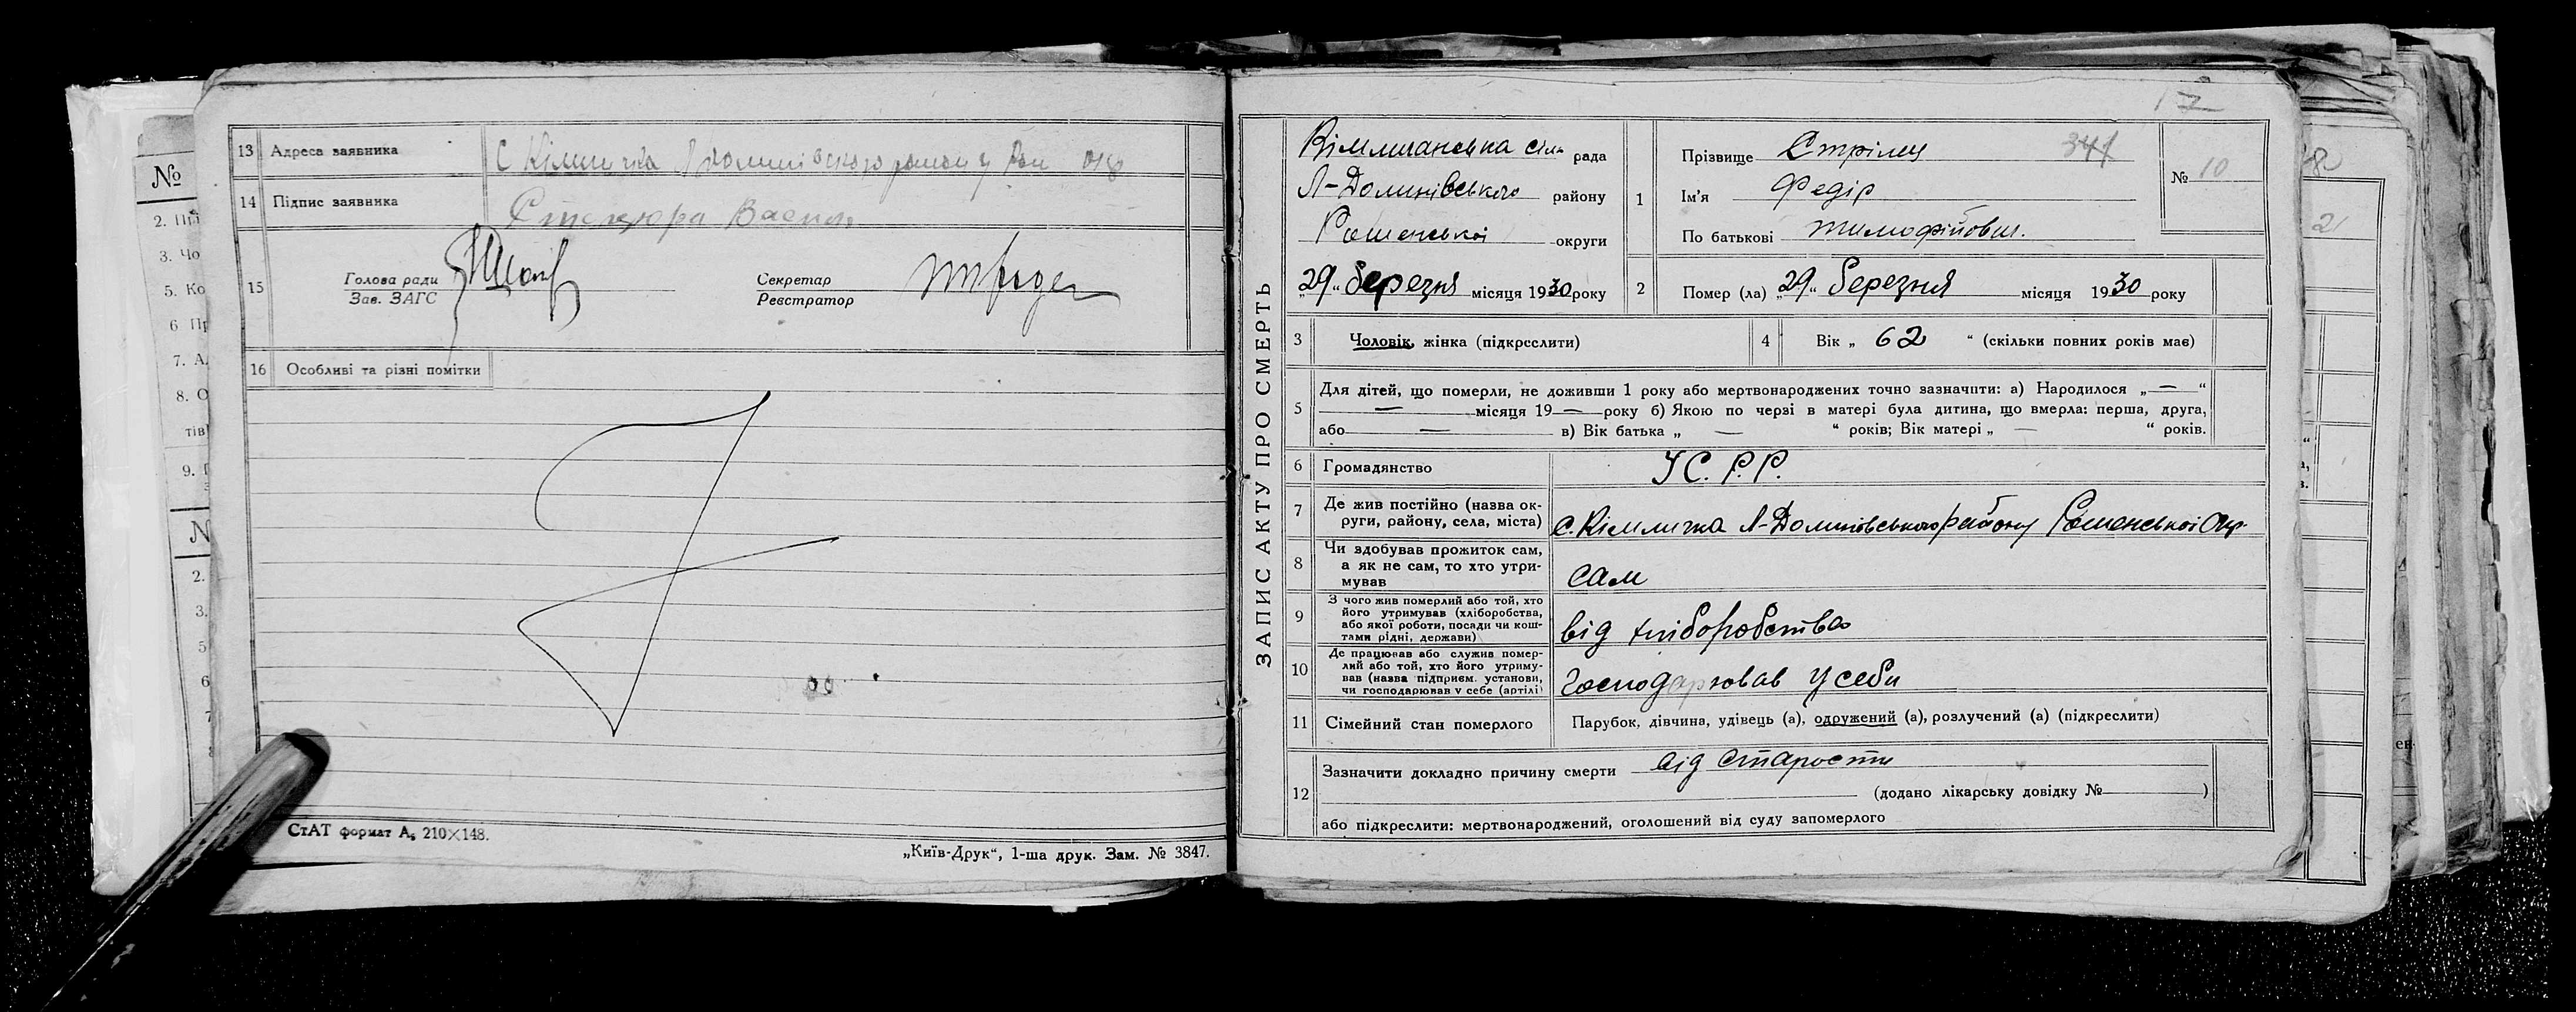 №
2. Прі
3. Чо
5. Ко
6 Пр
7. А
8. О
тів
9. П
13 Адреса заявника С Кімличка Л Долинівського району Ром окр
14 Підпис заявника Стецюра Василь
15 Голова ради
Зав. ЗАГС
Секретар
Реєстратор
16 Особливі та різні помітки
СтАТ формат А5 210×148.
„Київ-Друк“, 1-ша друк. Зам. № 3847.
17
ЗАПИС АКТУ ПРО СМЕРТЬ
Кімличанська сіль рада
Л-Долинівського району
Роменської округи
„29“ березня місяця 1930 року
1 Прізвище Стрілец 341
Ім'я Федір
По батькові тимофійович.
№ 10
2 Помер (ла) „29“ березня місяця 1930 року
3 Чоловік, жінка (підкреслити)
4 Вік „ 62 “ (скільки повних років має)
5 Для дітей, що померли, не доживши 1 року або мертвонароджених точно зазначити: а) Народилося „—“
— місяця 19 — року б) Якою по черзі в матері була дитина, що вмерла: перша, друга,
або — в) Вік батька „ — “ років; Вік матері „ — “ років.
6 Громадянство У С. Р. Р.
7 Де жив постійно (назва ок-
руги, району, села, міста) с. Кімличка Л-Долинівського району Роменської Окр.
8 Чи здобував прожиток сам,
а як не сам, то хто утри-
мував сам
9 З чого жив померлий або той, хто
його утримував (хліборобства,
або якої роботи, посади чи кош-
тами рідні, держави) від хліборобства
10 Де працював або служив помер-
лий або той, хто його утриму-
вав (назва підприєм. установи,
чи господарював у себе (артілі) господарював у себи
11 Сімейний стан померлого Парубок, дівчина, удівець (а), одружений (а), розлучений (а) (підкреслити)
12 Зазначити докладно причину смерти від старости
(додано лікарську довідку № )
або підкреслити: мертвонароджений, оголошений від суду запомерлого